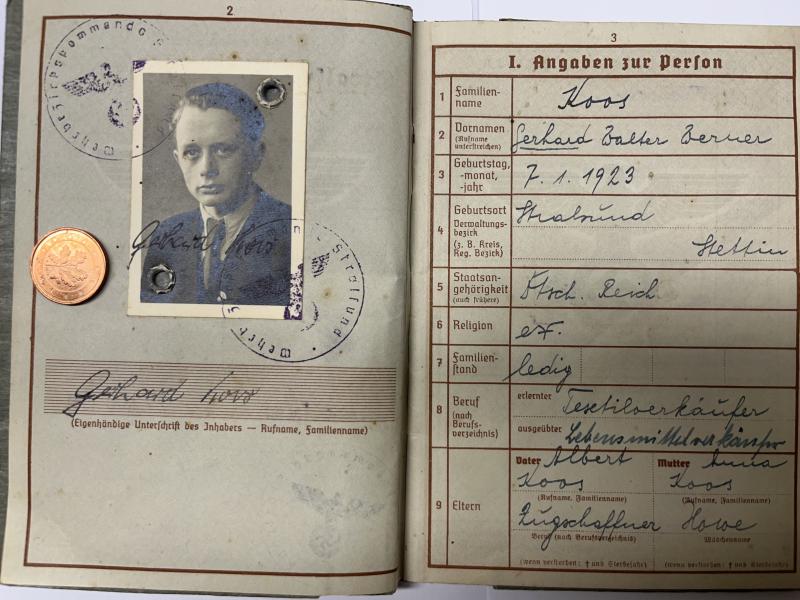 2
Wehrbezirkskommando
Wehrb
Stralsund
Gerhard Koos
Gerhard Koos
(Eigenhändige Unterschrift des Inhabers — Rufname, Familienname)
3
I. Angaben zur Person
1 Familien-
name
Koos
2 Vornamen
(Rufname
unterstreichen)
Gerhard Walter Werner
3 Geburtstag,
-monat,
-jahr
7. 1. 1923
4 Geburtsort
Verwaltungs-
bezirk
(z. B. Kreis,
Reg. Bezirk)
Stralsund
Stettin
5 Staatsan-
gehörigkeit
(auch frühere)
Dtsch. Reich
6 Religion
ev.
7 Familien-
stand
ledig
8 Beruf
(nach
Berufs-
verzeichnis)
erlernter Textilverkäufer
ausgeübter Lebensmittelverkäufer
9 Eltern
Vater Albert
Koos
(Rufname, Familienname)
Zugschaffner
Beruf (nach Berufsverzeichnis)
(wenn verstorben: † und Sterbejahr)
Mutter Anna
Koos
(Rufname, Familienname)
Howe
Mädchenname
(wenn verstorben: † und Sterbejahr)